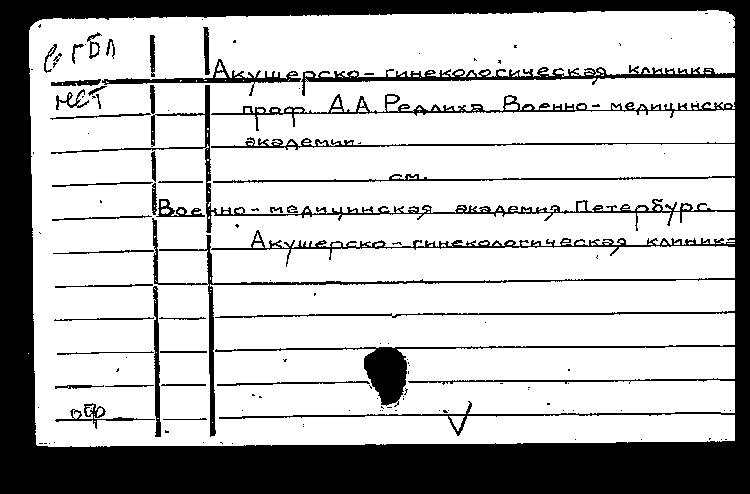 в ГБЛ
нет
Акушерско-гинекологическая клиника
проф. А.А. Редлиха Военно-медицинско
академии.
см.
Военно-медицинская академия. Петербург.
Акушерско-гинекологическая клиника
обр